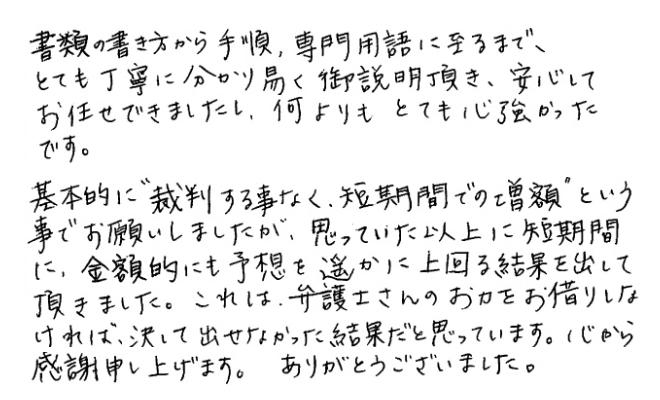 書類の書き方から手順、専門用語に至るまで、
とても丁寧に分かり易く御説明頂き、安心して
お任せできましたし、何よりもとても心強かった
です。
基本的に"裁判する事なく、短期間での増額"という
事でお願いしましたが、思っていた以上に短期間
に、金額的にも予想を遥かに上回る結果を出して
頂きました。これは、弁護士さんのお力をお借りしな
ければ、決して出せなかった結果だと思っています。心から
感謝申し上げます。 ありがとうございました。